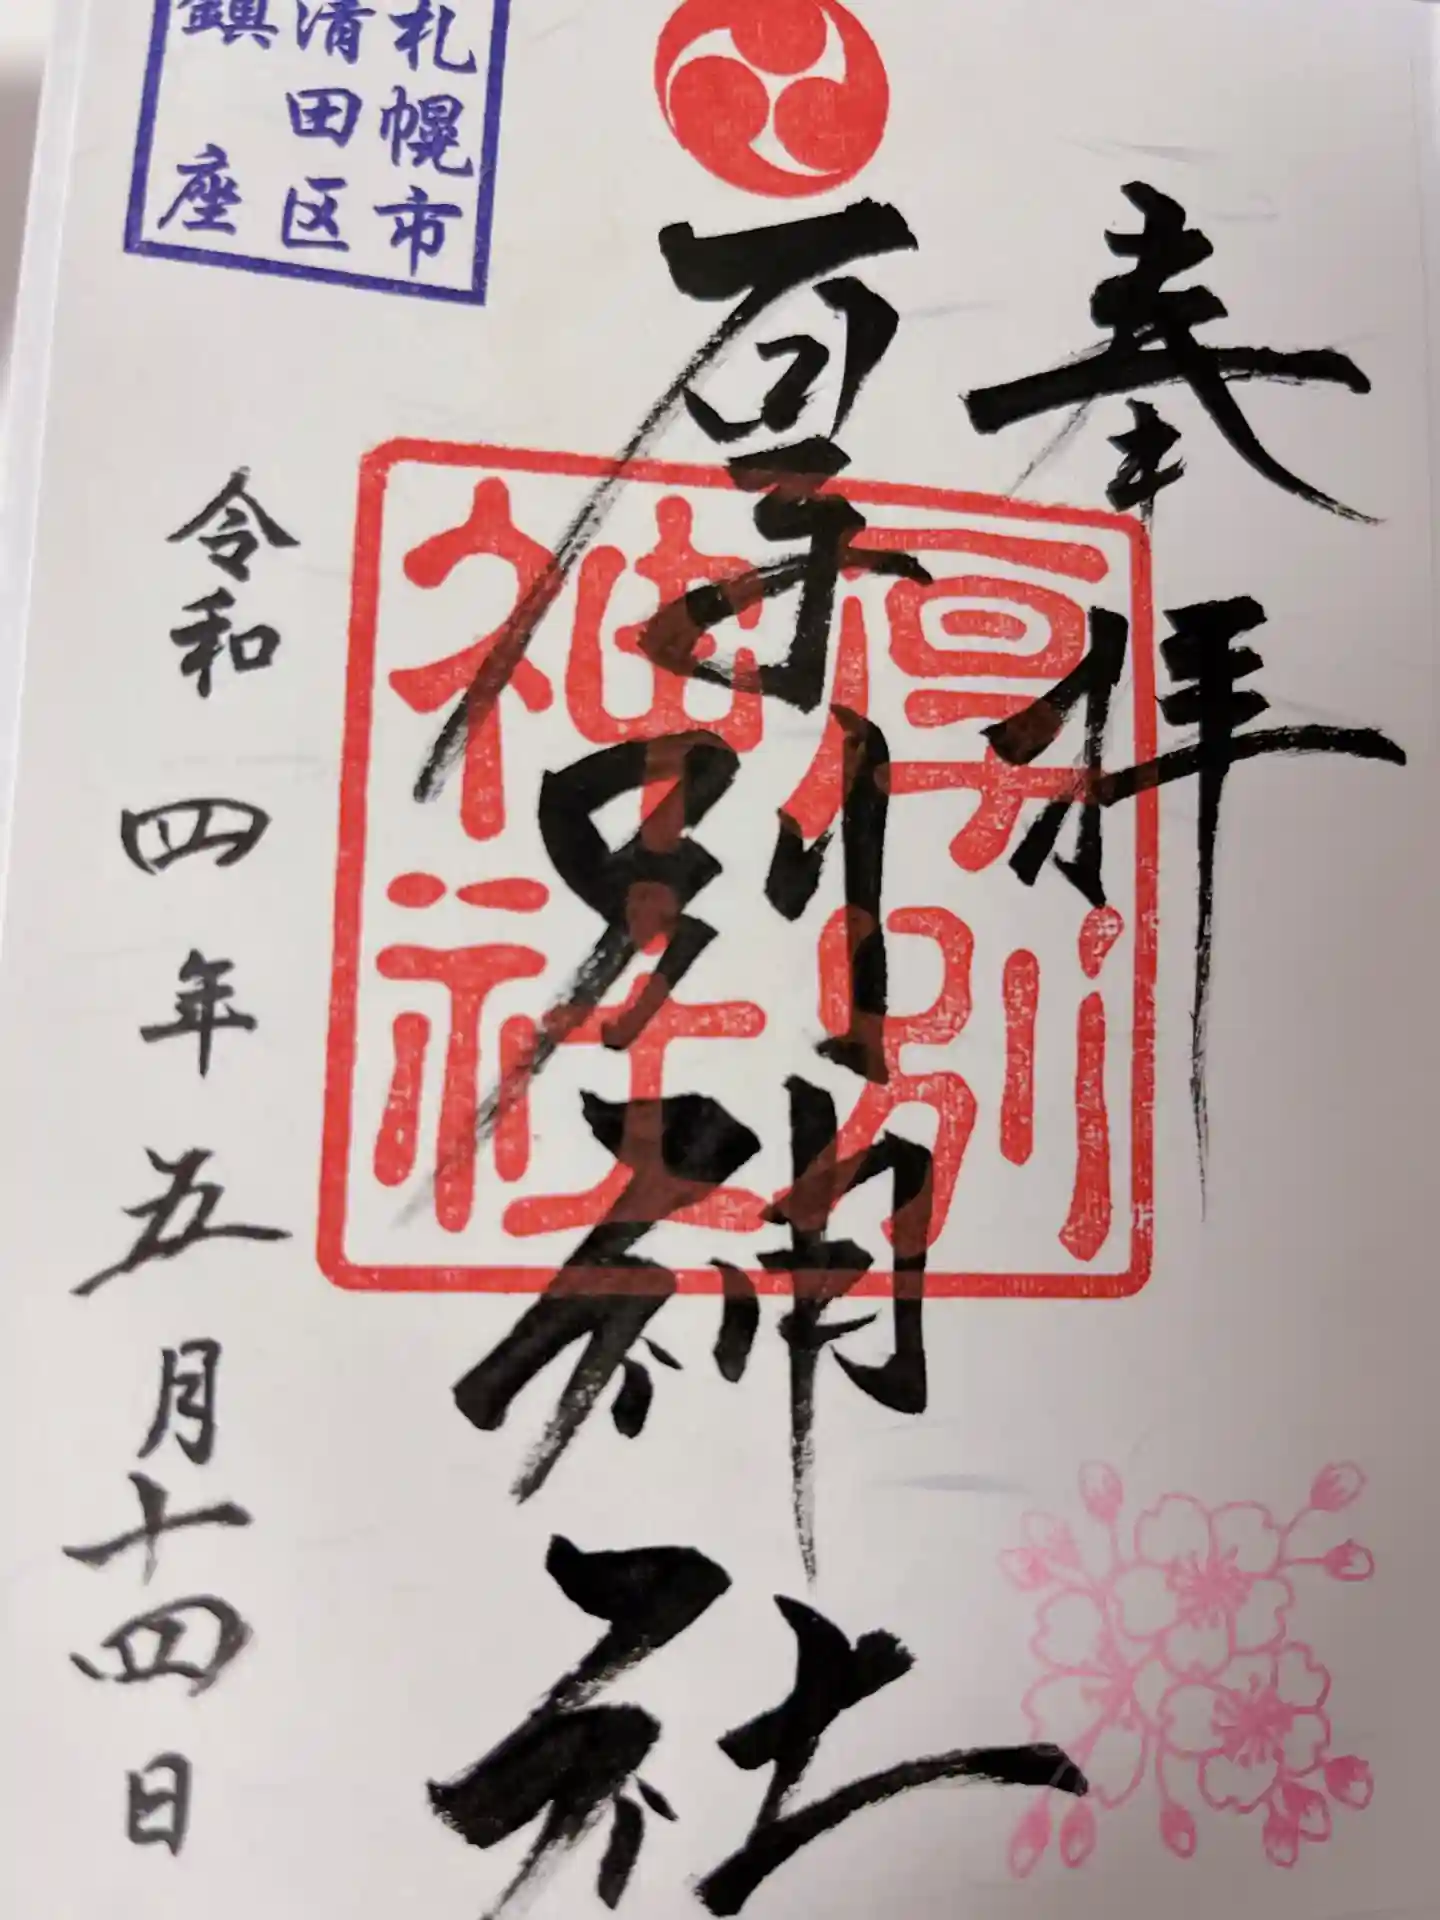 奉拝
厚別神社
厚別
神社
札幌市
清田区
鎮座
令和四年五月十四日